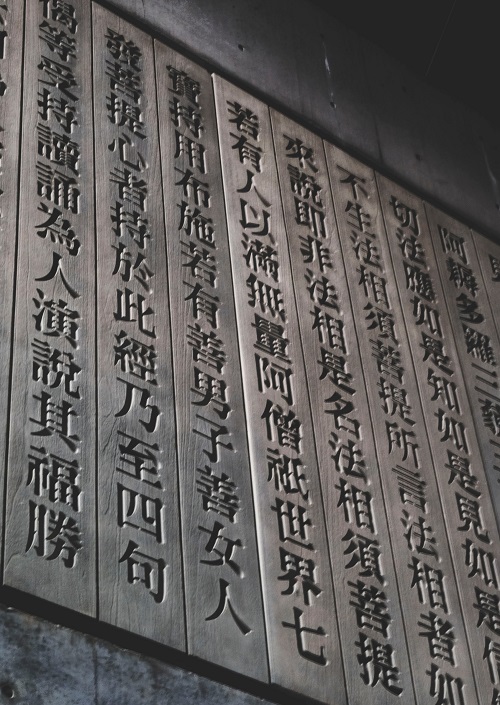 阿耨多羅三藐三
切法應如是知如是見如是信
不生法相須菩提所言法相者如
來說即非法相是名法相須菩提
若有人以滿無量阿僧祇世界七
寶持用布施若有善男子善女人
發菩提心者持於此經乃至四句
偈等受持讀誦為人演說其福勝